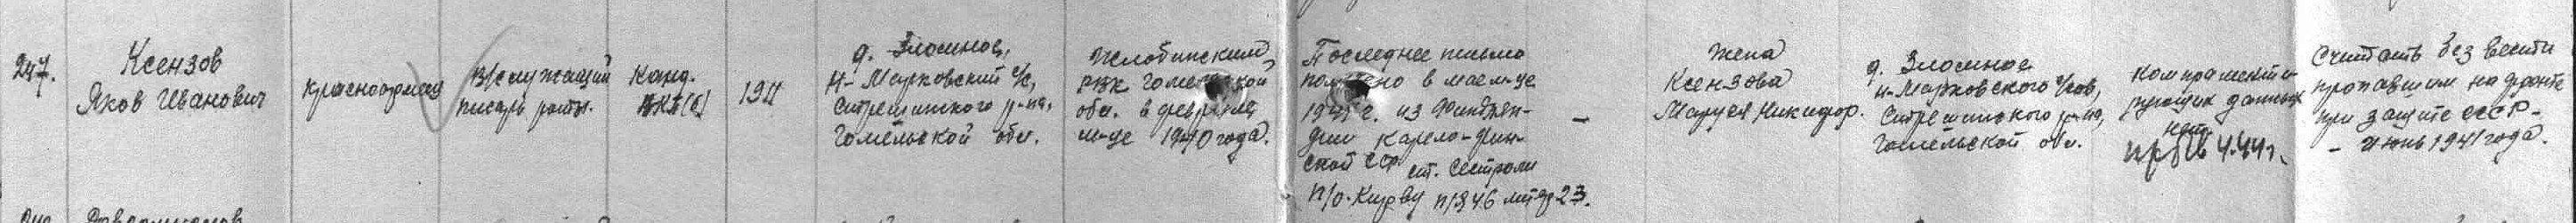 247.
Ксензов
Яков Иванович
красноармеец
В/служащий
писарь роты.
Канд.
ВКП(б)
1911
д. Злосиное,
Н-Марковский с/с,
Стрешинского р-на,
Гомельской обл.
Жлобинским
РВК Гомельской
обл. в феврале
м-це 1940 года.
Последнее письмо
получено в мае м-це
1941 г. из
Карело-Фин-
ской ССР ст.
п/о. п/я 46 литер 23.
—
Жена
Ксензова
Мария Никифор.
д. Злосиное
Н-Марковского с/сов,
Стрешинского р-на,
Гомельской обл.
компрометти-
рующих данных
нет
Считать без вести
пропавшим на фронте
при защите СССР -
- июнь 1941 года.